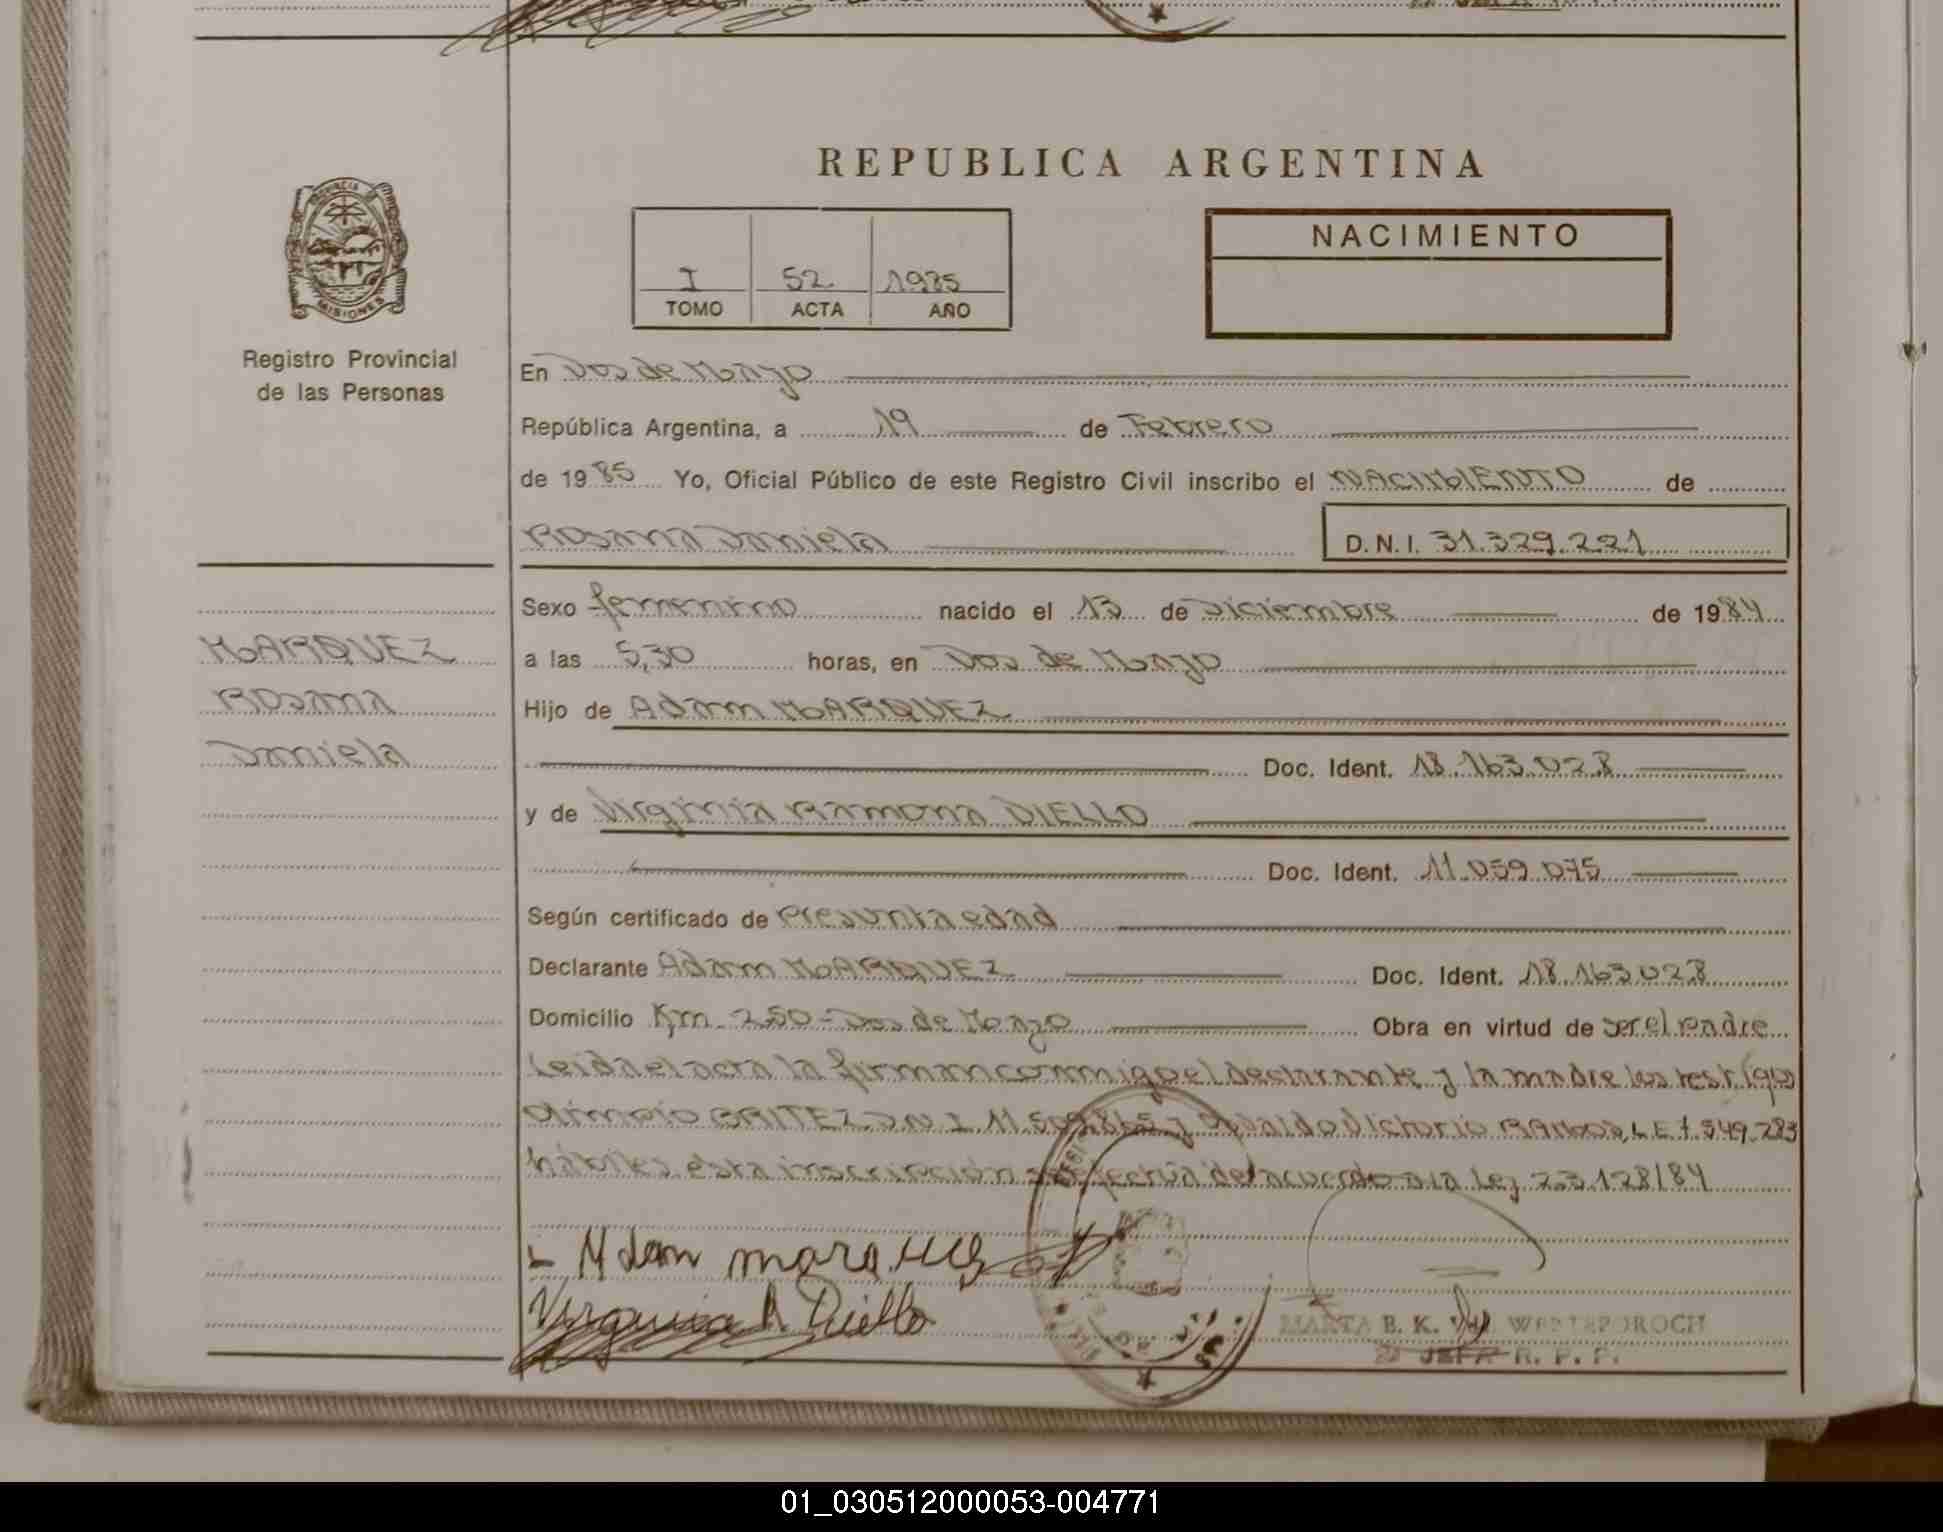 REPUBLICA ARGENTINA
PROVINCIA DE
MISIONES
Registro Provincial
de las Personas
I 52 1985
TOMO ACTA AÑO
NACIMIENTO
En Dos de Mayo
República Argentina, a 19 de Febrero
de 1985 Yo, Oficial Público de este Registro Civil inscribo el NACIMIENTO de
Rosana Daniela D.N.I. 31.329.221
MARQUEZ
Rosana
Daniela
Sexo femenino nacido el 13 de Diciembre de 1984
a las 5,30 horas, en Dos de Mayo
Hijo de Adam MARQUEZ
Doc. Ident. 18.163.028
y de Virginia Ramona DIELLO
Doc. Ident. 11.059.075
Según certificado de Presunta edad
Declarante Adam MARQUEZ Doc. Ident. 18.163.028
Domicilio Km. 250 - Dos de Mayo Obra en virtud de ser el padre
Leida el acta la firman conmigo el declarante y la madre los test.
Olimpio BRITEZ D N I 11.509.865 y Victorio RAMOS, L E 7.549.283
hábiles, esta inscripción se efectúa de acuerdo a la Ley 23.128/84
Adan marquez
Virginia R Diello
MARTA B. K.
JEFA R. P. P.
01_030512000053-004771